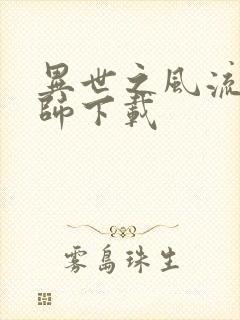 異世之風流
師下載
雾島珠生